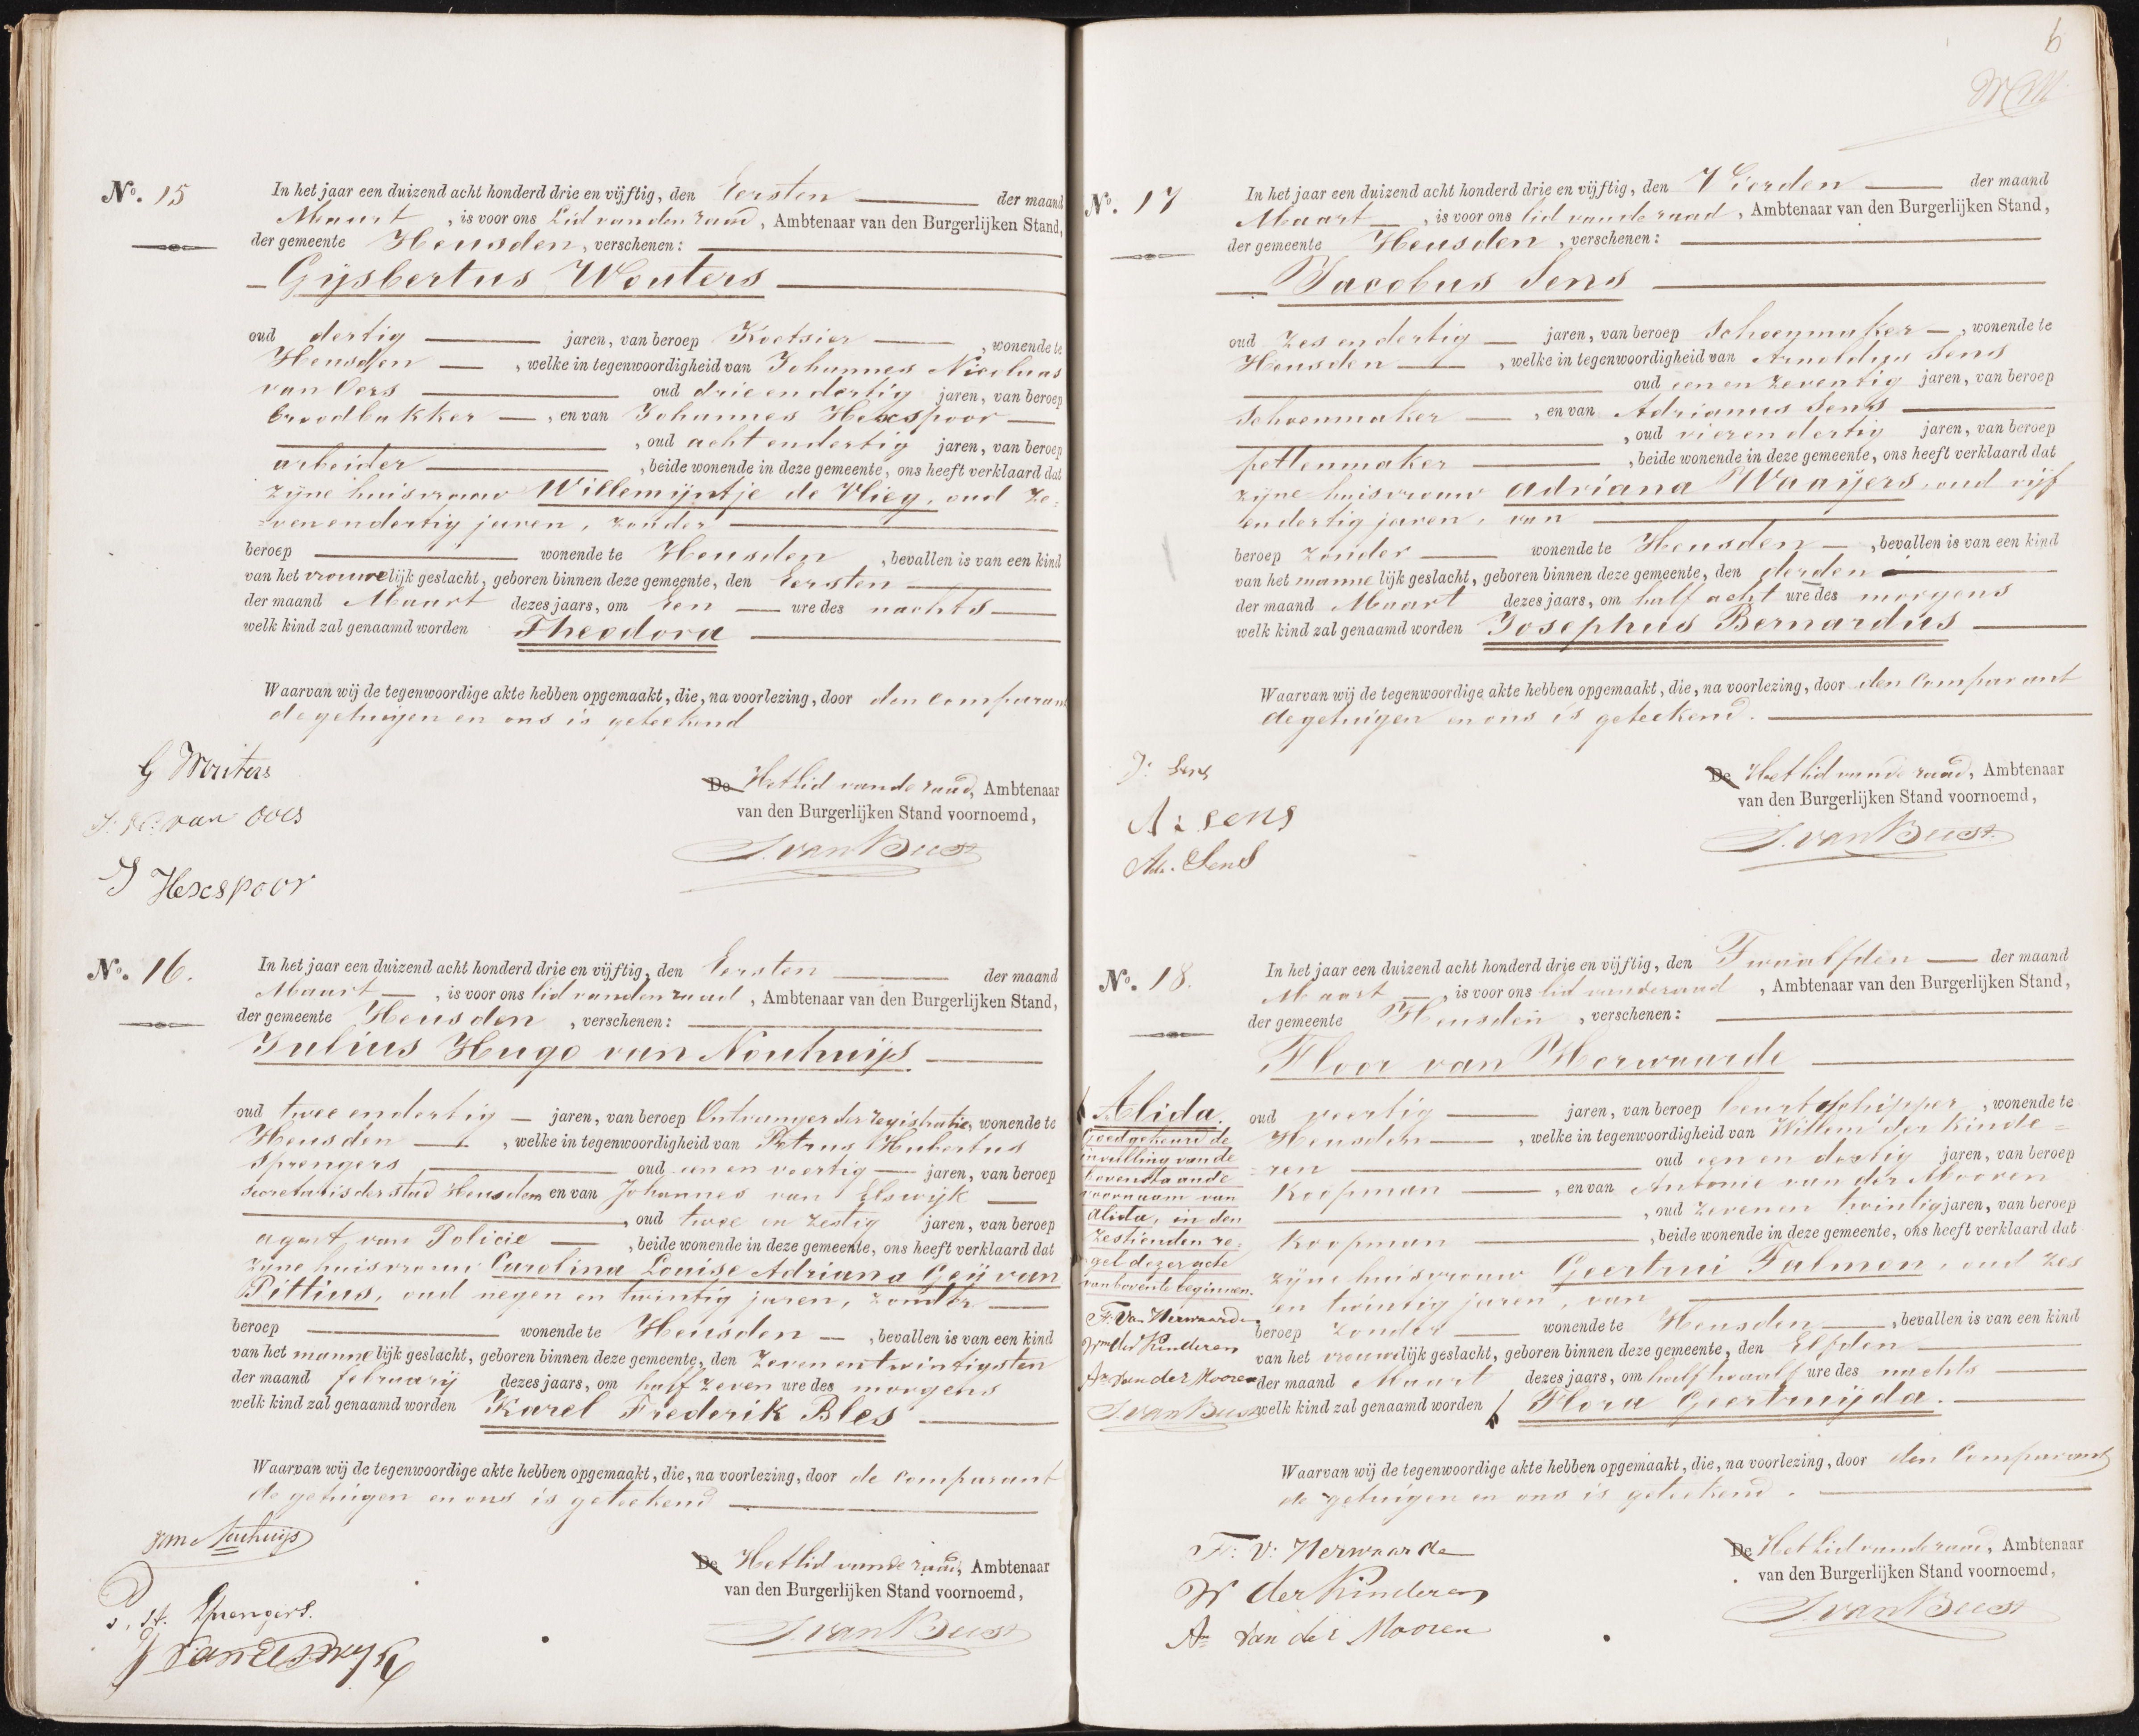 No. 15
In het jaar een duizend acht honderd drie en vijftig, den Eersten der maand
Maart, is voor ons Lid van den raad, Ambtenaar van den Burgerlijken Stand,
der gemeente Heusden, verschenen:
Gijsbertus Wouters
oud dertig jaren, van beroep Koetsier, wonende te
Heusden, welke in tegenwoordigheid van Johannes Nicolaas
van Oers oud drie en dertig jaren, van beroep
broodbakker, en van Johannes Hexspoor
, oud acht en dertig jaren, van beroep
arbeider, beide wonende in deze gemeente, ons heeft verklaard dat
zijne huisvrouw Willemijntje de Vlieg, oud ze=
=ven en dertig jaren, zonder
beroep wonende te Heusden, bevallen is van een kind
van het vrouwelijk geslacht, geboren binnen deze gemeente, den Eersten
der maand Maart dezes jaars, om Een ure des nachts
welk kind zal genaamd worden Theodora
Waarvan wij de tegenwoordige akte hebben opgemaakt, die, na voorlezing, door den comparant
de getuigen en ons is geteekend
G Wouters
J: N: van Oers
J Hexspoor
De Het lid van de raad, Ambtenaar
van den Burgerlijken Stand voornoemd,
J. van Beest
No. 16.
In het jaar een duizend acht honderd drie en vijftig, den Eersten der maand
Maart, is voor ons lid van den raad, Ambtenaar van den Burgerlijken Stand,
der gemeente Heusden, verschenen:
Julius Hugo van Nouhuijs.
oud twee en dertig jaren, van beroep Ontvanger der registratie, wonende te
Heusden, welke in tegenwoordigheid van Petrus Hubertus
Sprengers, oud een en veertig jaren, van beroep
Secretaris der stad Heusden en van Johannes van Elswijk
, oud twee en zestig jaren, van beroep
agent van Policie, beide wonende in deze gemeente, ons heeft verklaard dat
zijne huisvrouw Carolina Louise Adriana Geij van
Pittius, oud negen en twintig jaren, zonder
beroep wonende te Heusden, bevallen is van een kind
van het mannelijk geslacht, geboren binnen deze gemeente, den Zeven en twintigsten
der maand februarij dezes jaars, om half zeven ure des morgens
welk kind zal genaamd worden Karel Frederik Bles
Waarvan wij de tegenwoordige akte hebben opgemaakt, die, na voorlezing, door de comparant
de getuigen en ons is geteekend
van Nouhuijs
P. H. Sprengers.
J van Elswijk
De Het lid van de raad, Ambtenaar
van den Burgerlijken Stand voornoemd,
J. van Beest
6
No. 17
In het jaar een duizend acht honderd drie en vijftig, den Vierden der maand
Maart, is voor ons lid van de raad, Ambtenaar van den Burgerlijken Stand,
der gemeente Heusden, verschenen:
Jacobus Sens
oud zes en dertig jaren, van beroep Schoenmaker, wonende te
Heusden, welke in tegenwoordigheid van Arnoldus Sens
oud een en zeventig jaren, van beroep
Schoenmaker, en van Adrianus Sens
, oud vier en dertig jaren, van beroep
pettenmaker, beide wonende in deze gemeente, ons heeft verklaard dat
zijne huisvrouw Adriana Waaijers, oud vijf
en dertig jaren, van
beroep zonder wonende te Heusden, bevallen is van een kind
van het mannelijk geslacht, geboren binnen deze gemeente, den derden
der maand Maart dezes jaars, om half acht ure des morgens
welk kind zal genaamd worden Josephus Bernardus
Waarvan wij de tegenwoordige akte hebben opgemaakt, die, na voorlezing, door den Comparant
de getuigen en ons is geteekend.
J: Sens
A: sens
Ad. Sens
De Het lid van de raad, Ambtenaar
van den Burgerlijken Stand voornoemd,
J. van Beest
No. 18.
In het jaar een duizend acht honderd drie en vijftig, den Twaalfden der maand
Maart, is voor ons lid van de raad, Ambtenaar van den Burgerlijken Stand,
der gemeente Heusden, verschenen:
Floor van Herwaarde
oud veertig jaren, van beroep beurtschipper, wonende te
Heusden, welke in tegenwoordigheid van Willem der Kinde=
=ren oud een en dertig jaren, van beroep
Koopman, en van Antonie van der Mooren
, oud zeven en twintig jaren, van beroep
Koopman, beide wonende in deze gemeente, ons heeft verklaard dat
zijne huisvrouw Geertrui Talmon, oud zes
en twintig jaren, van
beroep zonder wonende te Heusden, bevallen is van een kind
van het vrouwelijk geslacht, geboren binnen deze gemeente, den Elfden
der maand Maart dezes jaars, om half twaalf ure des nachts
welk kind zal genaamd worden Flora Geertruijda.
Alida.
Goedgekeurd de
invulling van de
bovenstaande
voornaam van
Alida, in den
zestienden re=
gel dezer acte
van boven te beginnen.
F: Van Herwaarde
Wm der Kinderen
An van der Mooren
J. van Beest
Waarvan wij de tegenwoordige akte hebben opgemaakt, die, na voorlezing, door den Comparant
de getuigen en ons is geteekend.
F: V: Herwaarde
W der Kinderen
An van der Mooren
De Het Lid van de raad, Ambtenaar
van den Burgerlijken Stand voornoemd,
J. van Beest